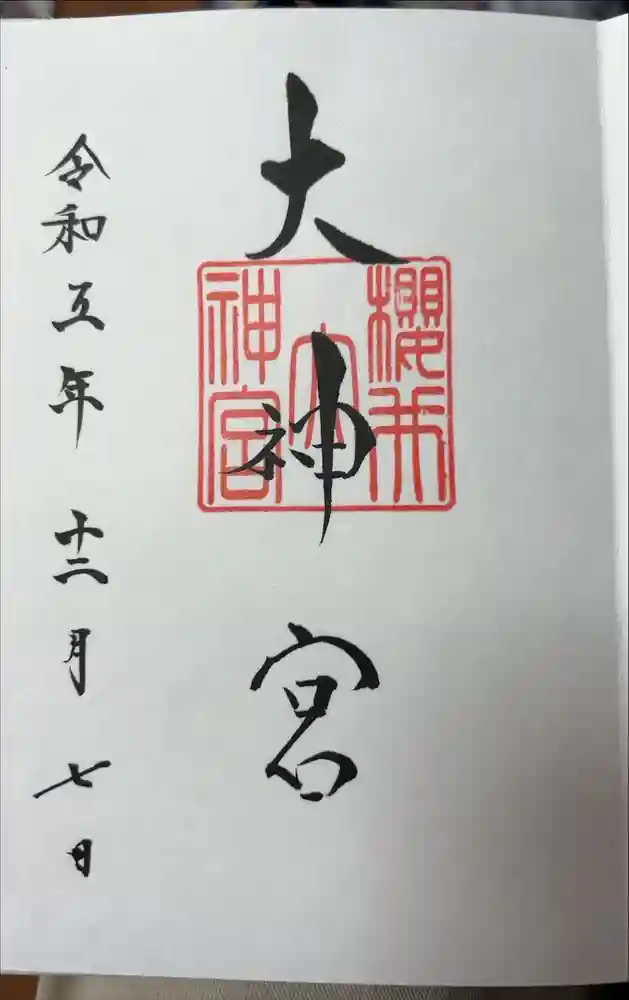 大神宮
櫻
大
神宮
令和五年 十二月 七日